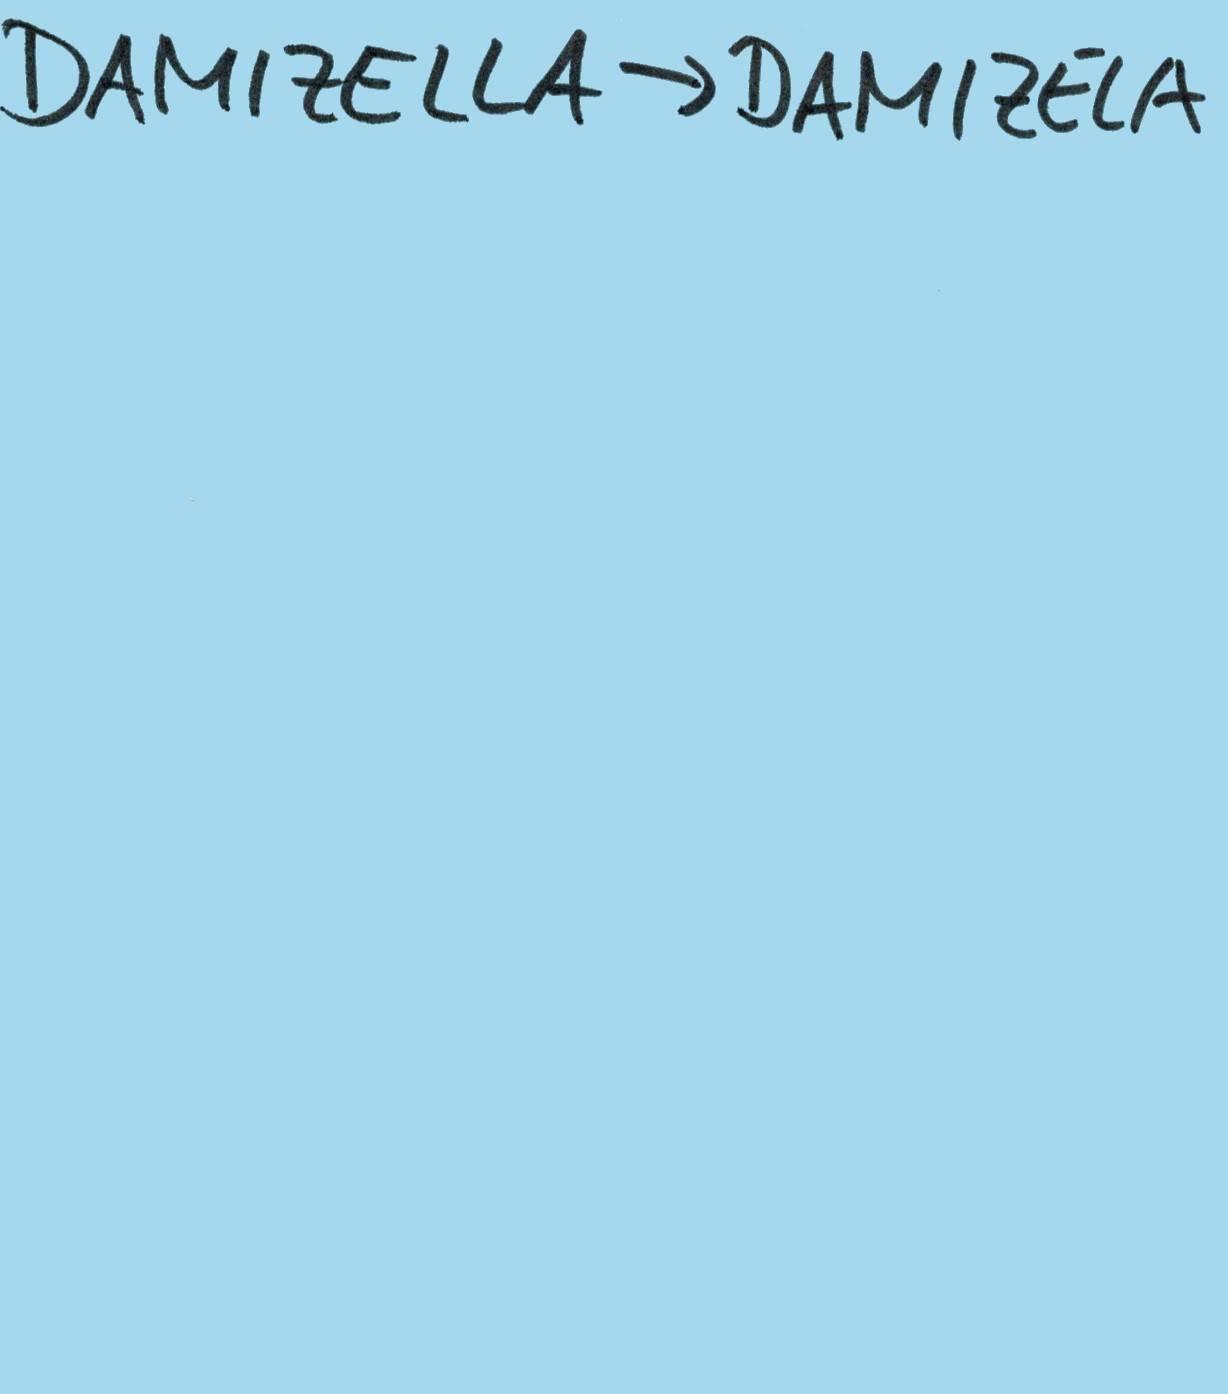 DAMIZELLA → DAMIZELA